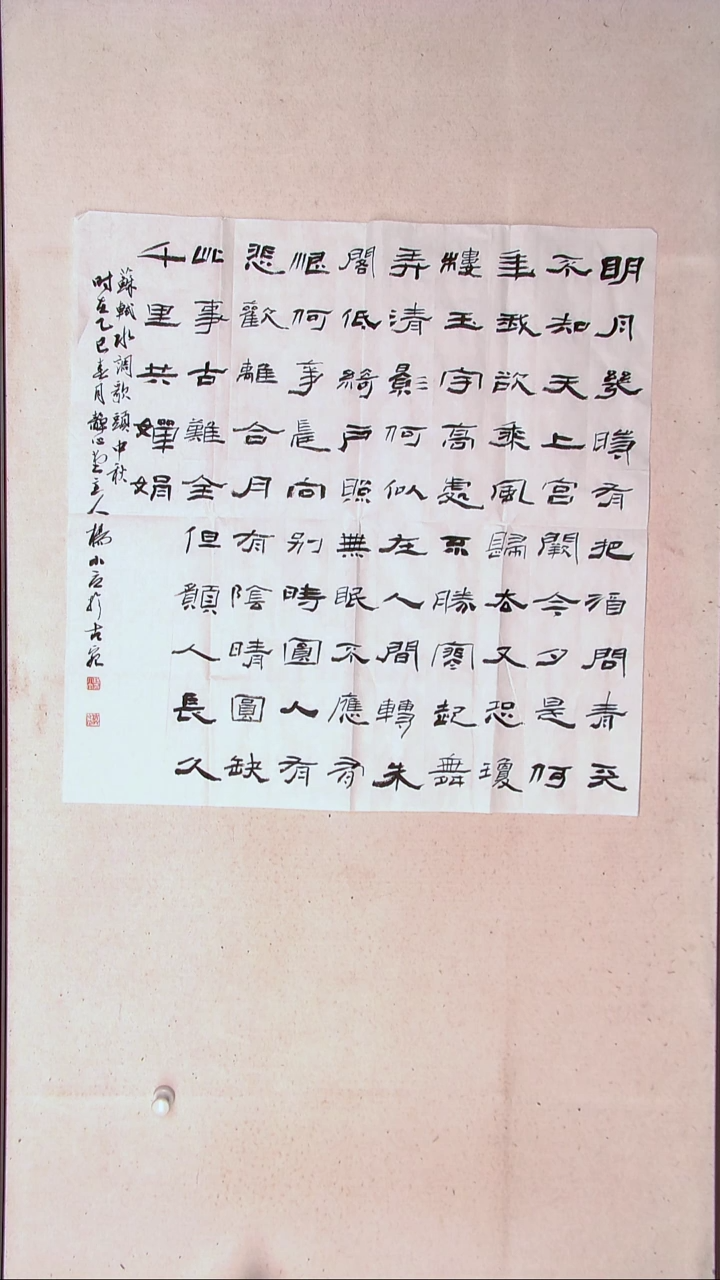 明月幾時有把酒問青天
不知天上宫闕今夕是何
年我欲乘風歸去又恐瓊
樓玉宇高處不勝寒起舞
弄清影何似在人間轉朱
閣低綺户照無眠不應有
恨何事長向别時圓人有
悲歡離合月有陰晴圓缺
此事古難全但願人長久
千里共嬋娟
蘇軾水調歌頭中秋
时在乙巳春月靜心主人楊小於古宛